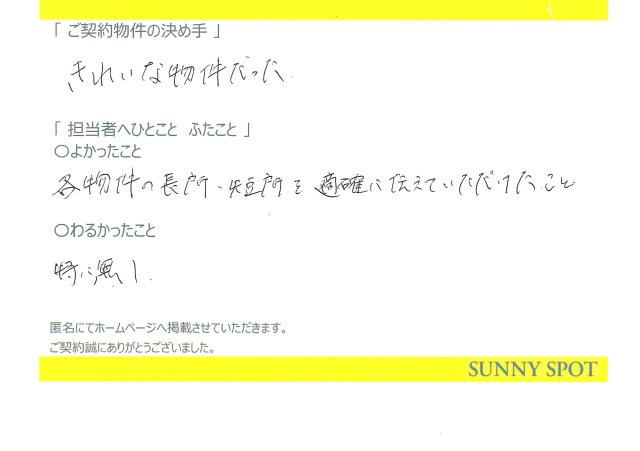 「 ご契約物件の決め手 」
きれいな物件だった
「 担当者へひとこと ふたこと 」
○よかったこと
各物件の長所・短所を適確に伝えていただけたこと
○わるかったこと
特に無し.
匿名にてホームページへ掲載させていただきます。
ご契約誠にありがとうございました。
SUNNY SPOT